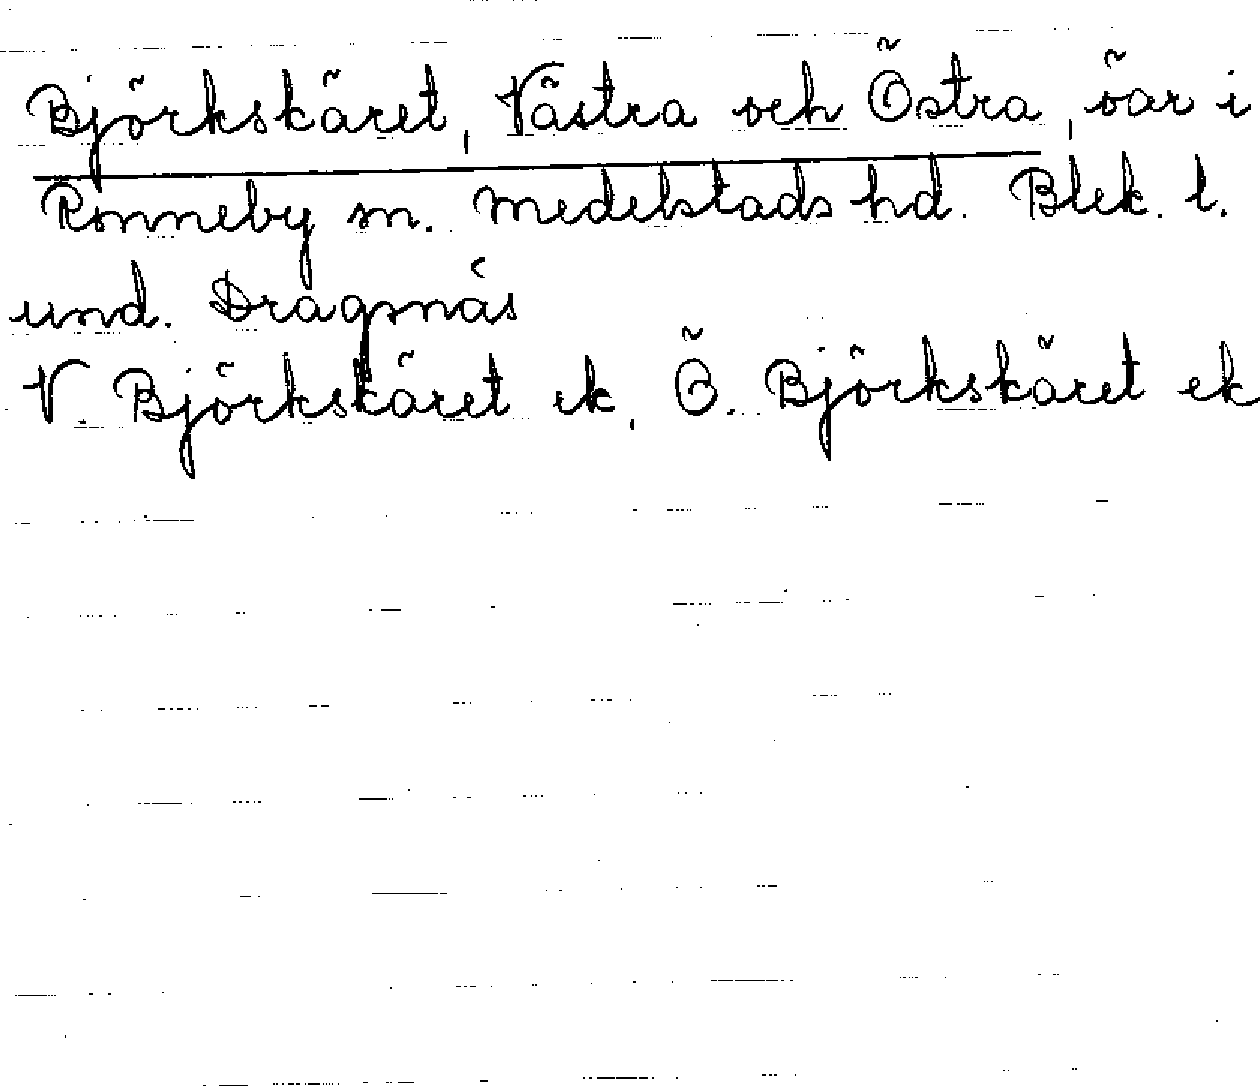 Björkskäret, Västra och Östra, öar i
Ronneby sn. Medelstads hd. Blek. l.
und. Dragsnäs
V. Björkskäret ek, Ö. Björkskäret ek